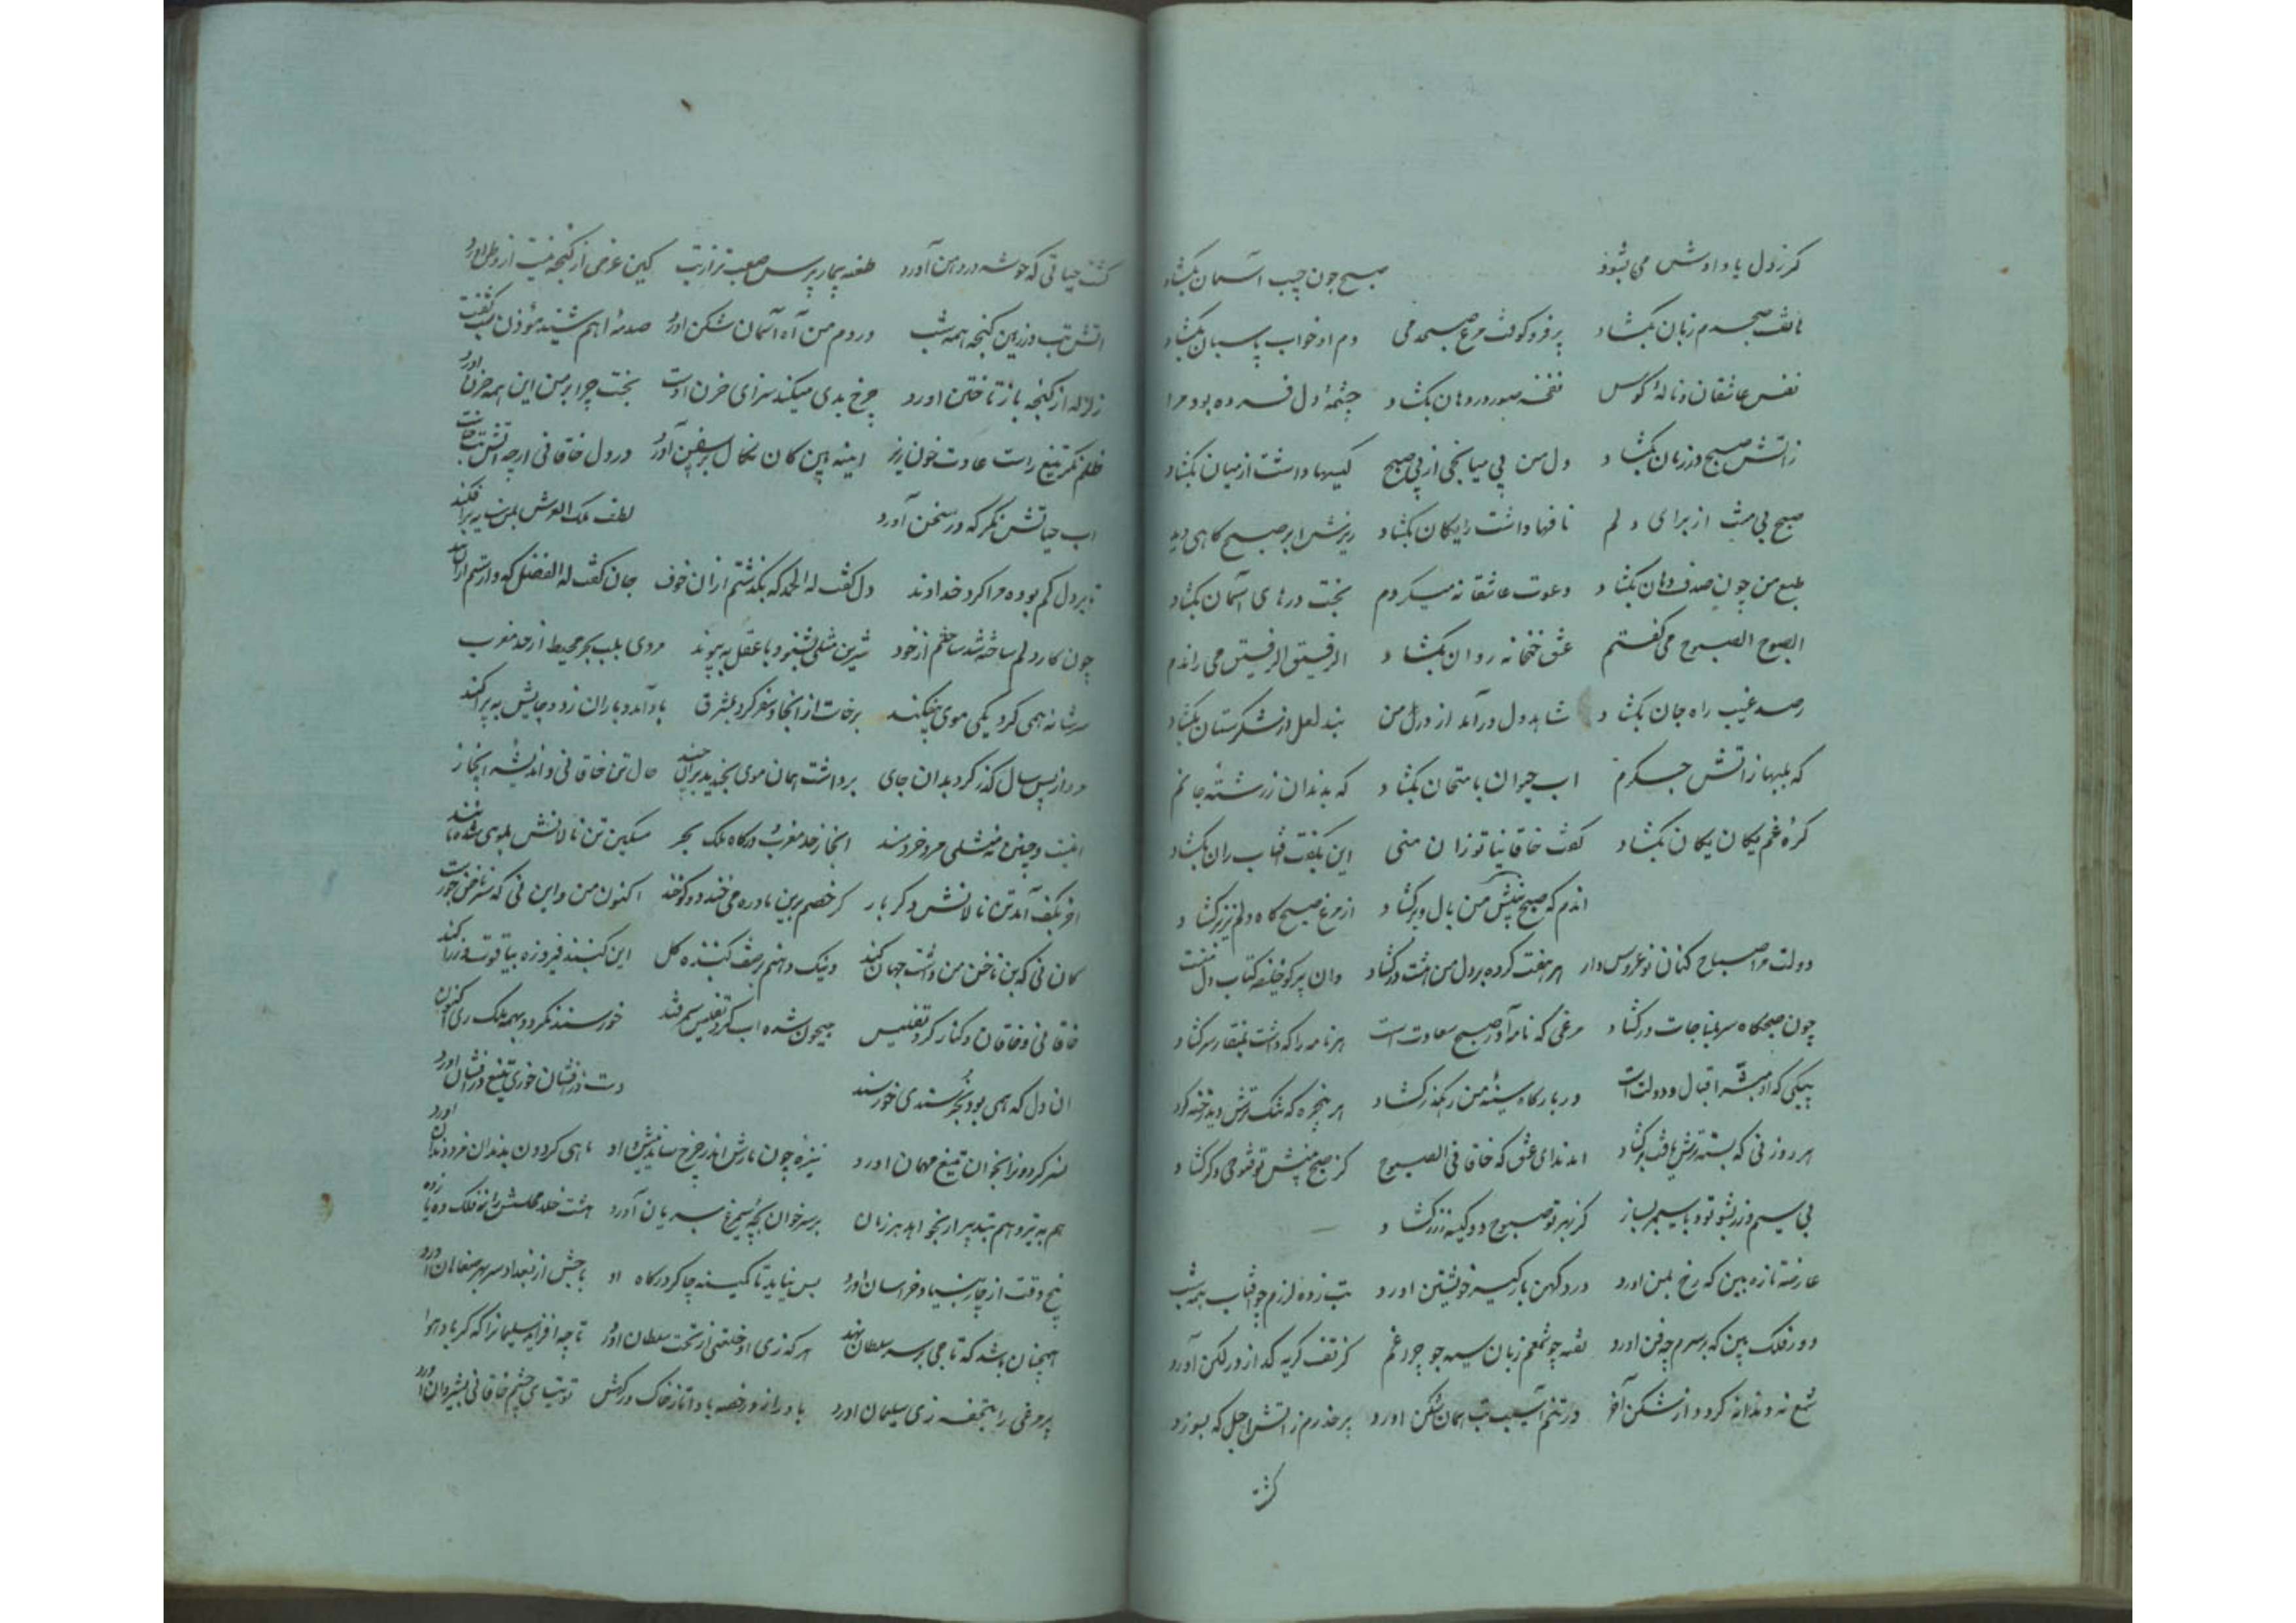 کر زدل یا دادش می بشود صبح چون جیب آسمان بکشاد
هاتف صبحدم زبان بکشاد پر فرو کوفت مرغ صبحدمی دم او خواب پاسبان بکشاد
نفس عاشقان و نالهٔ کوس نفخه صور در دهان بکشاد چشمهٔ دل فسرده بود مرا
زاتش صبح در زمان بکشاد دل من بی میانجی از پی صبح کیسها داشت از میان بکشاد
صبح بی منت از برای دلم نافها داشت رایکان بکشاد ریزش ابر صبح کاهی دید
طبع من چون صدف دهان بکشاد دعوت عاشقانه میکردم بخت درهای آسمان بکشاد
الصبوح الصبوح می کفتم عشق خمخانه روان بکشاد الرفیق الرفیق می راندم
رصد غیب راه جان بکشاد شاهد دل در آمد از در من بند لعل از شکرستان بکشاد
که بلبها ز اتش جکرم اب حیوان بامتحان بکشاد که بدندان ز رشتهٔ جانم
کرهٔ غم یکان یکان بکشاد کفت خاقانیا تو زان منی این بکفت افتاب ران بکشاد
اندم که صبح بینش من بال و پر کشاد از مرغ صبح کاه دلم نیز پر کشاد
دولت مرا صباح کنان نوعروس وار هر هفت کرده بر دل من هشت در کشاد وان پر کو خلیفه کتاب دل منست
چون صبحکاه سر بمناجات در کشاد مرغی که نامه آور صبح سعادت است هر نامه را که داشت بمنقار سر کشاد
پیکی که او مبشر اقبال و دولت است در بارکاه سینهٔ من رهکذر کشاد هر پنجره که تنک ترش دید رخنه کرد
هر روزنی که بسته ترش یافت بر کشاد امد ندای عشق که خاقانی الصبوح کز صبح بینش تو فتوحی دکر کشاد
بی سیم و زر بشو تو و با سیمبر بساز کز بهر تو صبوح دو کیسه ز زر کشاد
عارضهٔ تازه بین که رخ بمن اورد درد کهن بار کیسه خویشتن اورد تب زده لرزم چو افتاب همه شب
دور فلک بین که بر سرم چه فن اورد تفته چو شمعم زبان سیه چو چراغم کز تف کریه کداز در لکن آورد
شمع نه دندانه کردد از شکن آخر در تنم آسیب تب همان شکن اورد بر حذرم ز اتش اجل که بسوزد
کشت
کشت حیاتی که خوشه در دهن آورد طعنه بیمار پرس صعب تر از تب کین عرض از کنجه نیست از وطن اورد
اتش تب در زمین کنجه همه شب در دم من آه آسمان شکن اورد صدمهٔ اهم شنید مؤذن شب کفت
زلزله از کنجه باز تاختن اورد چرخ بدی میکند سزای حزن اوست بخت چرا بر من این همه حزن اورد
ظلم نکر تیغ راست عادت خون ریز اینه بین کان نکال بر سفن آورد در دل خاقانی ارچه اتش تب خاست
اب حیاتش نکر که در سخن آورد لطف ملک العرش بمن سایه بر افکند
تا بر دل کم بوده مرا کرد خداوند دل کفت له الحمد که بکذشتم از ان خوف جان کفت له الفضل که وارستم ازان بند
چون کار دلم ساخته شد ساختم از خود شیرین مثلی بشنو و با عقل به پیوند مردی بلب بحر محیط از حد مغرب
سر شانه همی کرد یکی موی بیفکند برخاست از انجا و سفر کرد بمشرق باد آمد و باران زد و جایش به پراکند
مرد از پس سال کذر کرد بدان جای برداشت همان موی بخندید بر ان چند حال تن خاقانی و اندیشهٔ ابخاز
اینست و چنین به مثلی مرد خردمند ابخاز حد مغرب و درکاه ملک بحر مسکین تن نالانش بموی شده مانند
اخر بکف آمد تن نالانش دکر بار کر خصم برین نادره می خندد کو خند اکنون من و این نی که سر ناخن حور است
کان نی که بن ناخن من داشت جهان کند و ینک دهنم بر صفت کنبذه کل این کنبد فیروزه بیاقوت و زر اکند
خاقانی و خاقان و کنار کر و تفلیس جیحون شده اب کر و تفلیس سمرقند خورسند نکردد بهمه ملک ری اکنون
ان دل که همی بود بخرسندی خورسند دست در افشان خوری تیغ در افشان اورد
نسر کردونرا بخوان تیغ مهمان اورد نیزه چون مارش اندر چرخ ساید نیش او ماهی کردون بدندان مزد دندان اورد
هم به تیر و هم بتدبیر ار بخواهد هر زمان بر سر خوان بچهٔ سیمرغ بریان آورد هشت خلد مجلسش را نه فلک ده یازده
پنج وقت از چار بنیاد خراسان اورد بس نیاید تا کمینه چاکر درکاه او باجش از بغداد سر بهر صفاهان اورد
همچنان باشد که تاجی بر سر سلطان نهد هر که زی او خلعتی از تخت سلطان اورد تا چه افزاید سلیمانرا که کر باد هوا
پر مرغی را بتحفه زی سلیمان اورد باد را از در خصه باد اتاز خاک درکهش توتیای چشم خاقانی بشیروان اورد